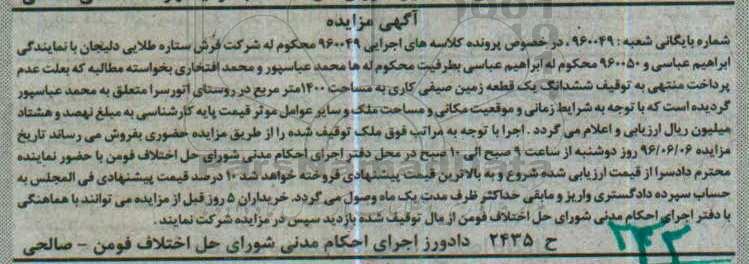 آگهی مزایده
شماره بایگانی شعبه : ۹۶۰۰۴۹ ، در خصوص پرونده کلاسه های اجرایی ۹۶۰۰۴۹ محکوم له شرکت فرش ستاره طلایی دلیجان با نمایندگی
ابراهیم عباسی و ۹۶۰۰۵۰ محکوم له ابراهیم عباسی بطرفیت محکوم له ها محمد عباسپور و محمد افتخاری بخواسته مطالبه که بعلت عدم
پرداخت منتهی به توقیف ششدانگ یک قطعه زمین صیفی کاری به مساحت ۱۴۰۰ متر مربع در روستای آتورسرا متعلق به محمد عباسپور
گردیده است که با توجه به شرایط زمانی و موقعیت مکانی و مساحت ملک و سایر عوامل موثر قیمت پایه کارشناسی به مبلغ نهصد و هشتاد
میلیون ریال ارزیابی و اعلام می گردد . اجرا با توجه به مراتب فوق ملک توقیف شده را از طریق مزایده حضوری بفروش می رساند تاریخ
مزایده ۹۶/۰۶/۰۶ روز دوشنبه از ساعت ۹ صبح الی ۱۰ صبح در محل دفتر اجرای احکام مدنی شورای حل اختلاف فومن با حضور نماینده
محترم دادسرا از قیمت ارزیابی شده شروع و به بالاترین قیمت پیشنهادی فروخته خواهد شد ۱۰ درصد قیمت پیشنهادی فی المجلس به
حساب سپرده دادگستری واریز و مابقی حداکثر ظرف مدت یک ماه وصول می گردد. خریداران ۵ روز قبل از مزایده می توانند با هماهنگی
با دفتر اجرای احکام مدنی شورای حل اختلاف فومن از مال توقیف شده بازدید سپس در مزایده شرکت نمایند .
ح ۲۴۳۵ دادورز اجرای احکام مدنی شورای حل اختلاف فومن - صالحی